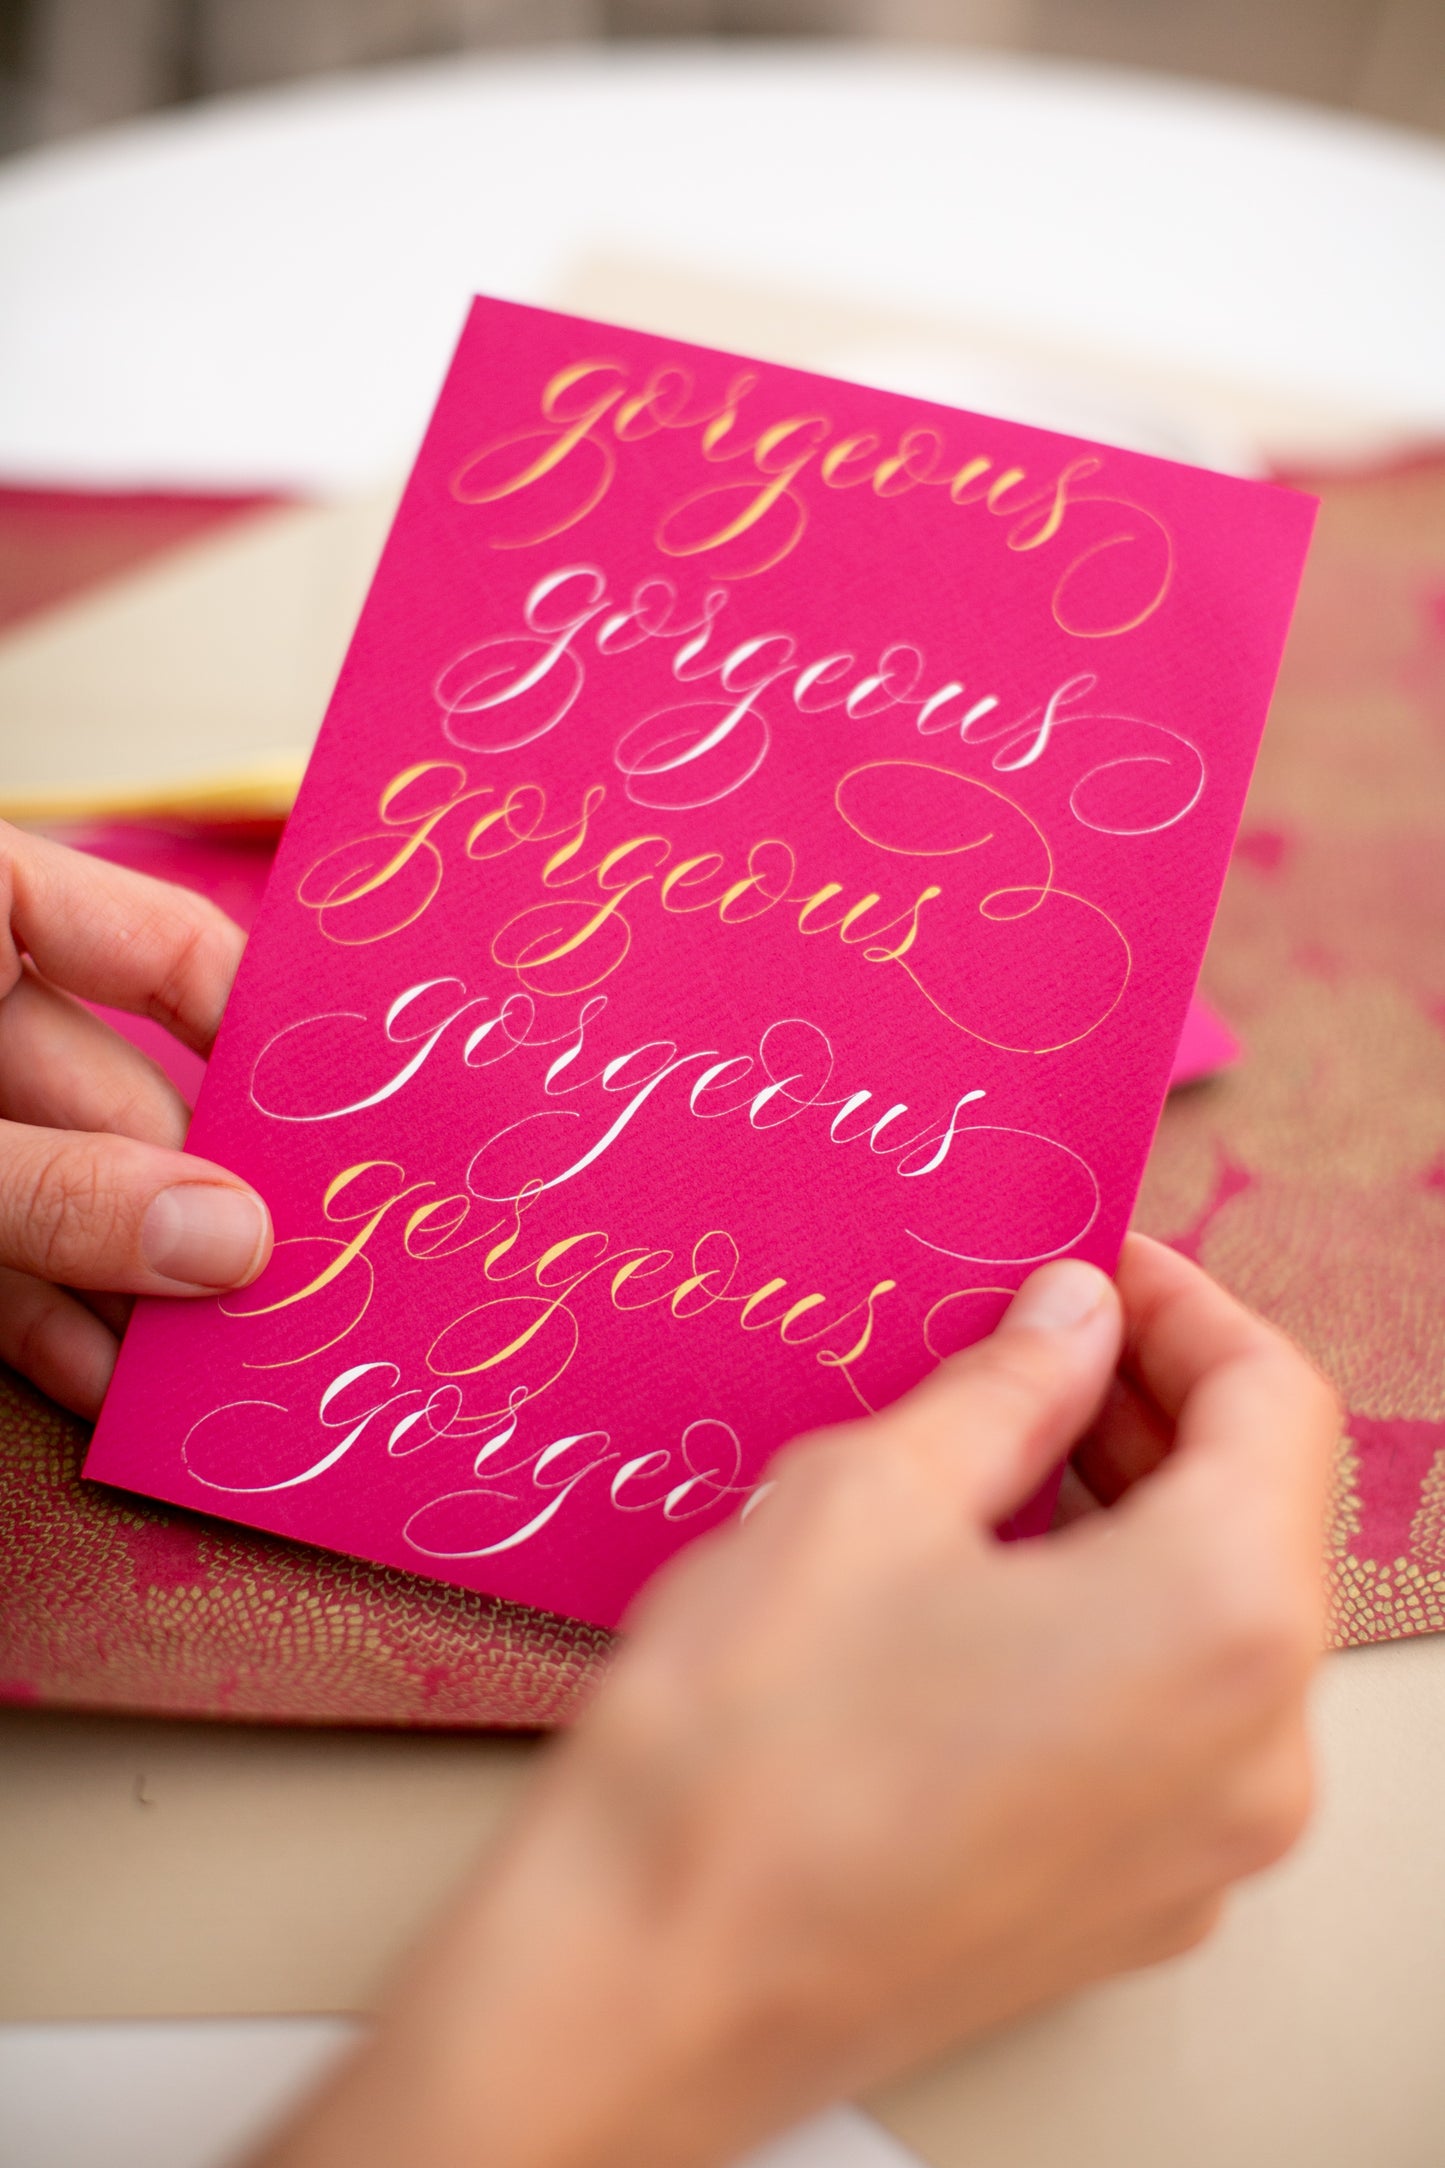 gorgeous
gorgeous
gorgeous
gorgeous
gergeous
gorgeo